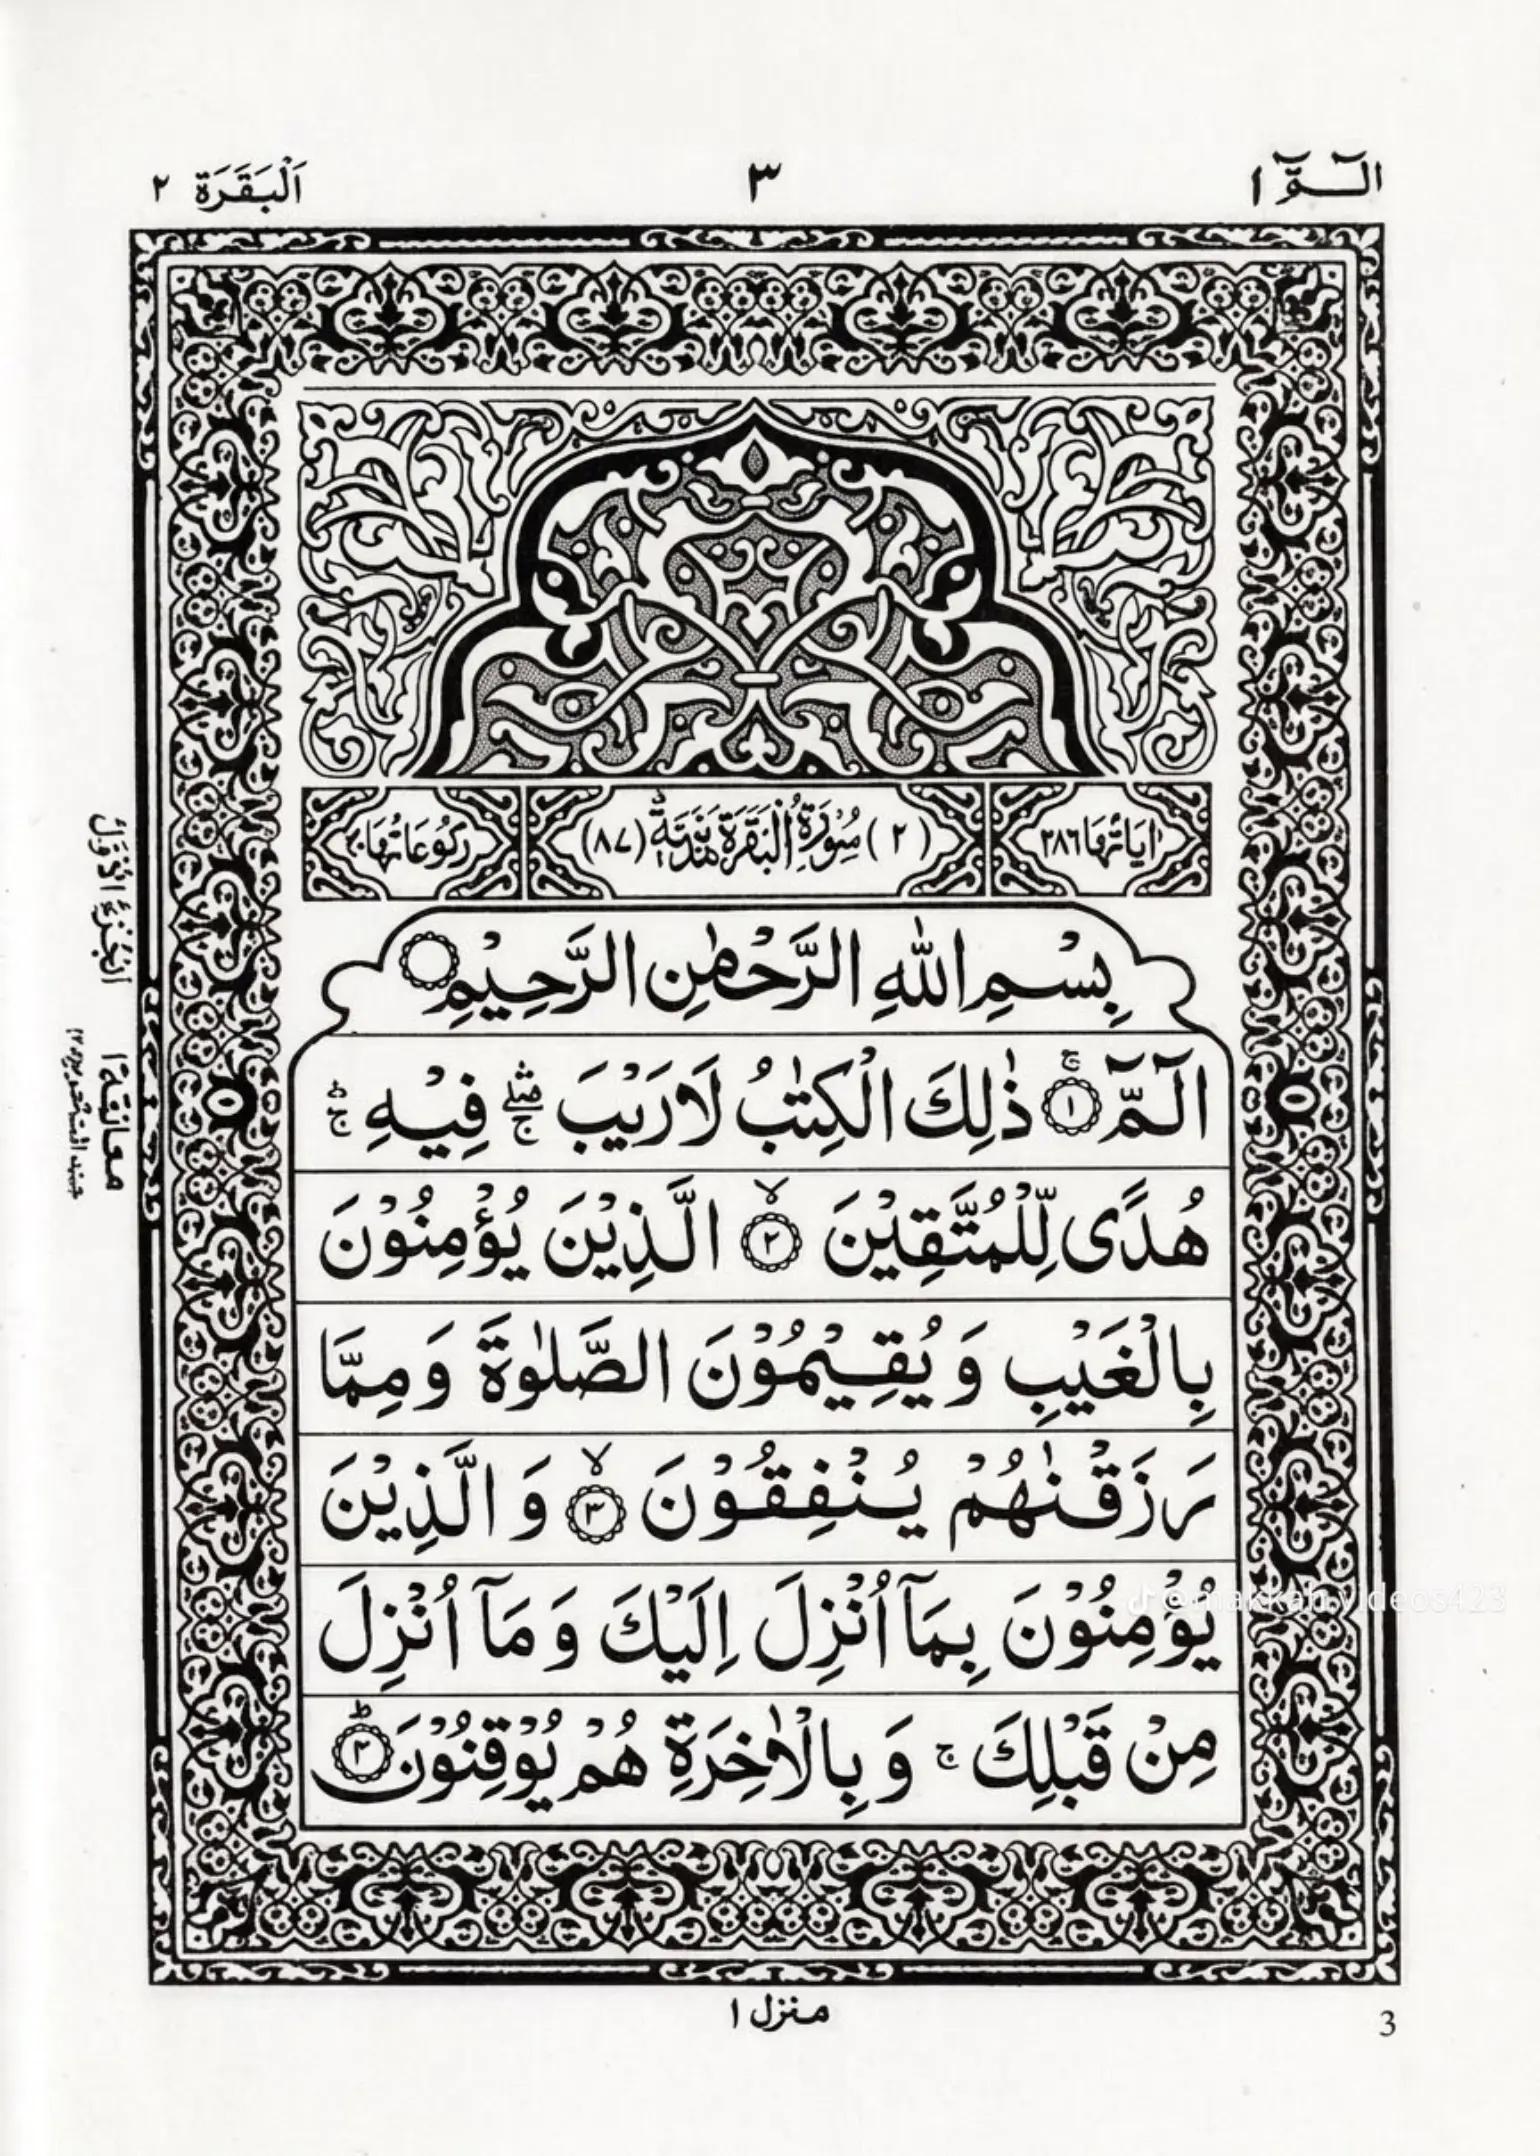 الٓـمّٓ ١
٣
اَلْبَقَرَة ٢
اٰيَاتُهَا ٢٨٦
(٢) سُوْرَةُ الْبَقَرَةِ مَدَنِيَّةٌ (٨٧)
رُكُوْعَاتُهَا ٤٠
بِسْمِ اللّٰهِ الرَّحْمٰنِ الرَّحِيْمِ
الٓمّٓ ۚ ١ ذٰلِكَ الْكِتٰبُ لَا رَيْبَ ۛۖۚ فِيْهِ ۛۚ
هُدًى لِّلْمُتَّقِيْنَ ۙ ٢ الَّذِيْنَ يُؤْمِنُوْنَ
بِالْغَيْبِ وَ يُقِيْمُوْنَ الصَّلٰوةَ وَ مِمَّا
رَزَقْنٰهُمْ يُنْفِقُوْنَ ۙ ٣ وَ الَّذِيْنَ
يُؤْمِنُوْنَ بِمَاۤ اُنْزِلَ اِلَيْكَ وَ مَاۤ اُنْزِلَ
مِنْ قَبْلِكَ ۚ وَ بِالْاٰخِرَةِ هُمْ يُوْقِنُوْنَ ؕ ٤
اَلْجُزْءُ الْاَوَّلُ
معانقة ١
منزل ١
3
@makkah.videos423